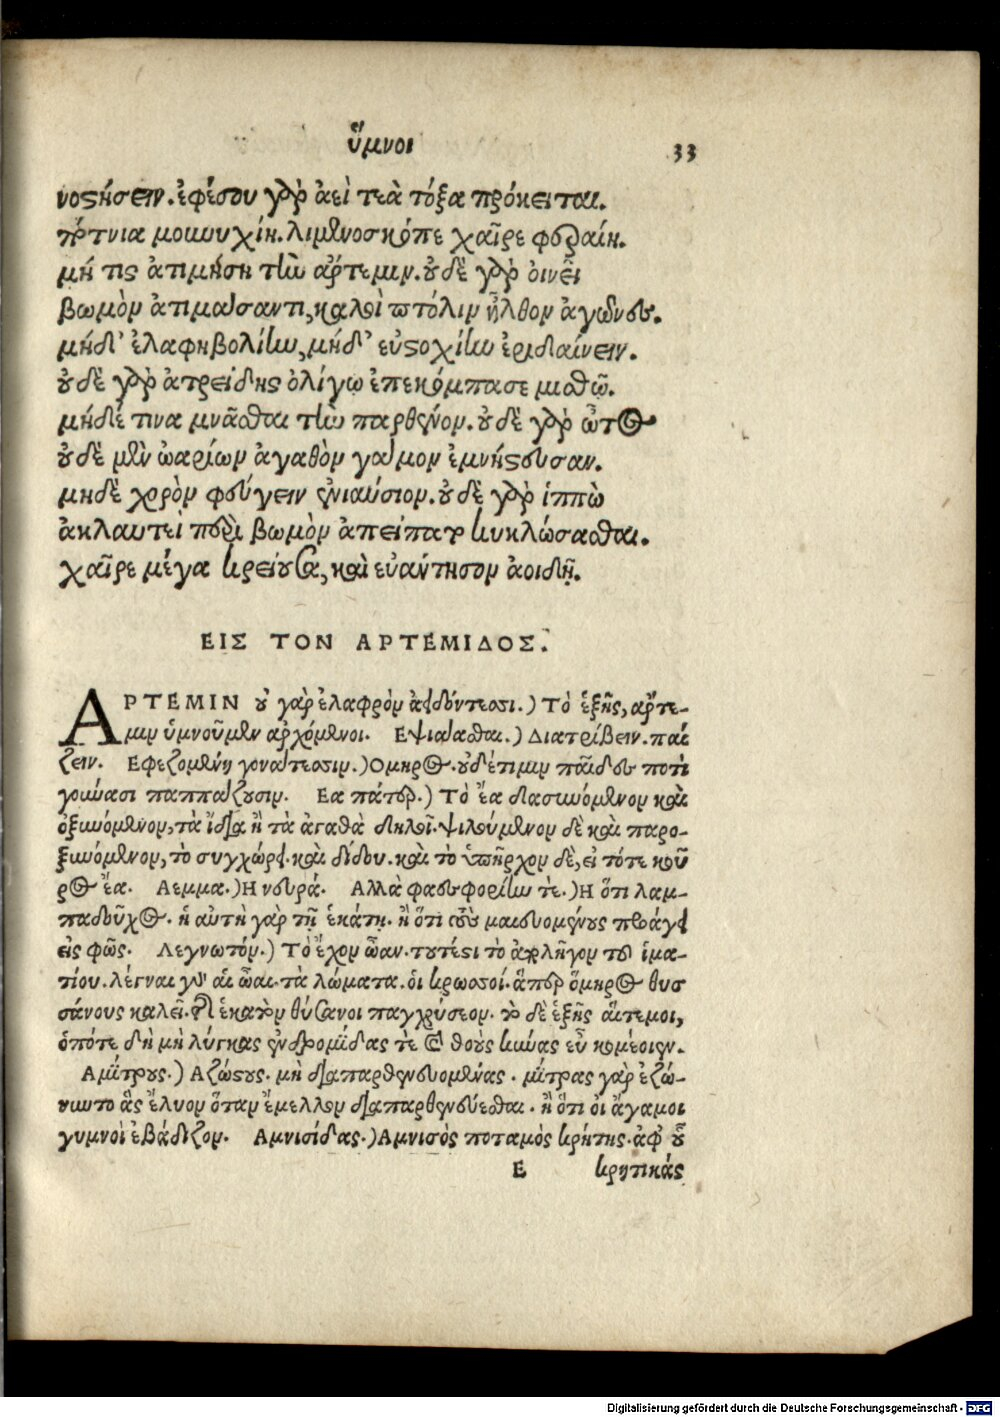 ὕμνοι 33
νοςήσειν. ἐφέσου γὰρ ἀεὶ τεὰ τόξα πρόκειται.
πότνια μουνυχίη. λιμενοσκόπε χαῖρε φεραίη.
μή τις ἀτιμήση τὴν ἄρτεμιν. οὐδὲ γὰρ οἰνεῖ
βωμὸν ἀτιμάσαντι, καλοὶ πτόλιν ἦλθον ἀγῶνες.
μήδ' ἐλαφηβολίην, μήδ' εὐστοχίην ἐριδαίνειν.
οὐδὲ γὰρ ἀτρείδης ὀλίγω ἐπεκόμπασε μισθῷ.
μήδέ τινα μνᾶσθαι τὴν παρθένον. οὐδὲ γὰρ ὦτος
οὐδὲ μὲν ὠαρίων ἀγαθὸν γάμον ἐμνήστευσαν.
μηδὲ χορὸν φεύγειν ἐνιαύσιον. οὐδὲ γὰρ ἱππὼ
ἀκλαυτεὶ περὶ βωμὸν ἀπείπατο κυκλώσασθαι.
χαῖρε μέγα κρείουσα, καὶ εὐάντησον ἀοιδῇ.
ΕΙΣ ΤΟΝ ΑΡΤΕΜΙΔΟΣ.
ΑΡΤΕΜΙΝ οὐ γὰρ ἐλαφρὸν ἀειδόντεσσι.) Τὸ ἑξῆς, ἄρτε-
μιν ὑμνοῦμεν ἀρχόμενοι. Εψιάασθαι.) Διατρίβειν. παί
ζειν. Εφεζομένη γονάτεσσιν.) Ομηρος. οὐδέτιμιν παῖδες ποτὶ
γούνασι παππάζουσιν. Εα πάτερ.) Τὸ ἔα δασυνόμενον καὶ
ὀξυνόμενον, τὰ ἴδια ἢ τὰ ἀγαθὰ δηλοῖ. ψιλούμενον δὲ καὶ παρο-
ξυνόμενον, τὸ συγχώρει. καὶ δίδου. καὶ τὸ ὑπῆρχον δὲ, εἰ τότε κοῦ
ρος ἔα. Αεμμα.) Η νευρά. Αλλὰ φαεσφορίην τε.) Η ὅτι λαμ-
παδοῦχος. ἡ αὐτὴ γὰρ τῇ ἑκάτῃ. ἢ ὅτι τοὺς μαιευομένους προάγει
εἰς φῶς. Λεγνωτόν.) Τὸ ἔχον ὤαν. τουτέστι τὸ ἀπολῆγον τοῦ ἱμα-
τίου. λέγναι γὰρ αἱ ὦαι. τὰ λώματα. οἱ κρωσσοί. ἅπερ ὅμηρος θυσ
σάνους καλεῖ. τῆς ἑκατὸν θύσανοι παγχρύσεοι. τὸ δὲ ἑξῆς αἴτεμοι,
ὁπότε δὴ μὴ λύγκας ἐνδρομίδας τε καὶ θοὺς κύνας εὖ κομέοιεν.
Αμίτρους.) Αζώστους. μὴ διαπαρθενευομένας. μίτρας γὰρ ἐζώ-
νυντο ἃς ἔλυον ὅταν ἔμελλον διαπαρθενεύεσθαι. ἢ ὅτι οἱ ἄγαμοι
γυμνοὶ ἐβάδιζον. Αμνισίδας.) Αμνισὸς ποταμὸς κρήτης. ἀφ' οὗ
Ε κρητικάς